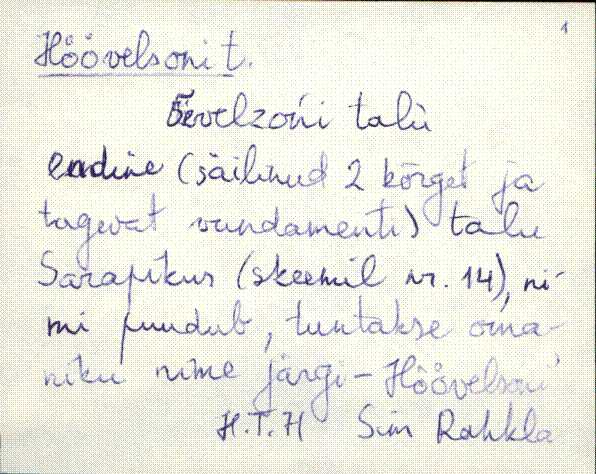 1
Höövelsoni t.
talù
endine (säilinud 2 kõrget ja
tugevat vundamenti) talu
Sarapikus (skeemil nr. 14), ni-
mi puudub, tuntakse oma-
niku nime järgi - Höövelsoni
H.T.H Sim Rahkla